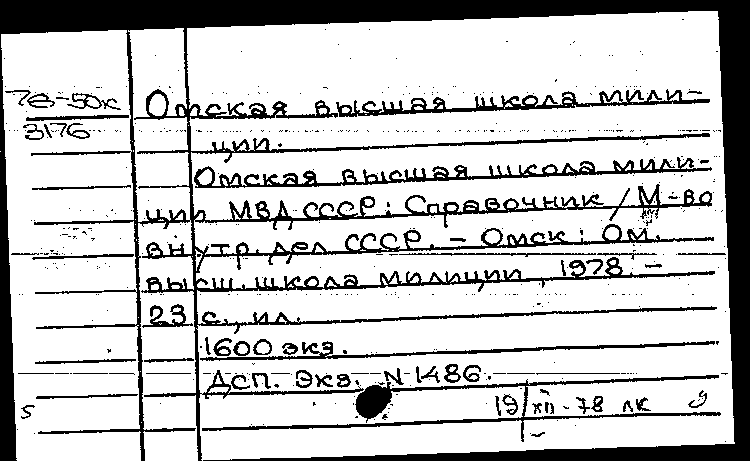 78-50к
3176
Омская высшая школа мили-
ции.
Омская высшая школа мили-
ции МВД СССР: Справочник / М-во
внутр. дел СССР. – Омск: Ом.
высш. школа милиции, 1978. –
23 с., ил.
1600 экз.
ДСП. Экз. N 1486.
19/XII-78 лк
5